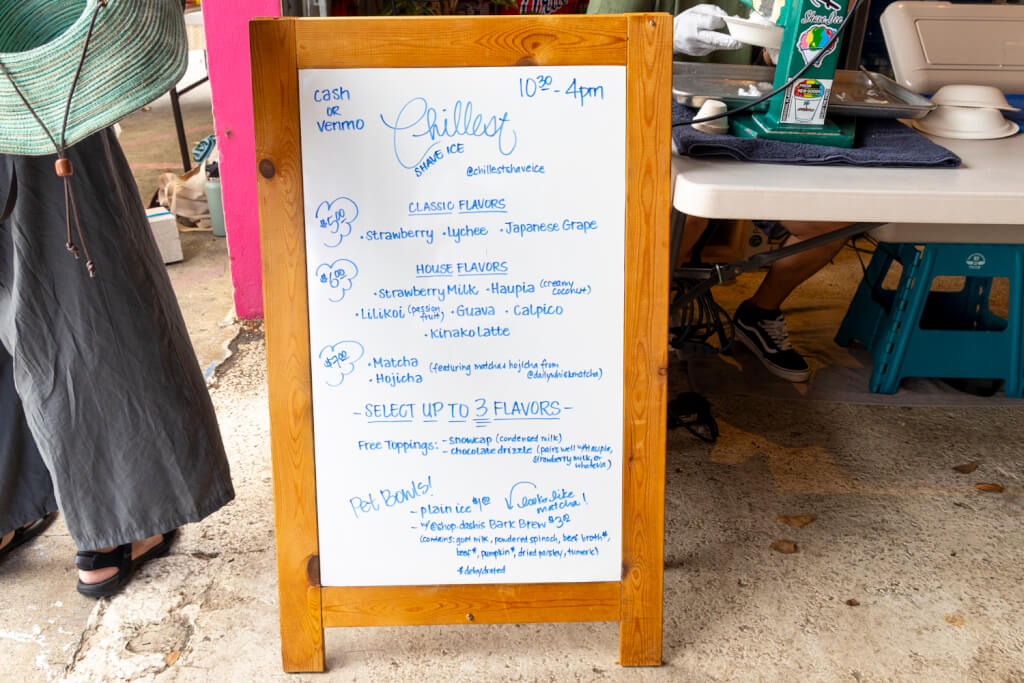 cash
or
venmo
10³⁰ - 4pm
Chillest
SHAVE ICE
@chillestshaveice
CLASSIC FLAVORS
$5.00
• Strawberry • Lychee • Japanese Grape
HOUSE FLAVORS
$6.00
• Strawberry Milk • Haupia (creamy coconut)
• Lilikoi (passion fruit) • Guava • Calpico
• Kinako Latte
$7.00
• Matcha
• Hojicha
(featuring matcha + hojicha from
@dailywhiskmatcha)
- SELECT UP TO 3 FLAVORS -
Free Toppings: - snowcap (condensed milk)
- chocolate drizzle (pairs well w/ Haupia,
strawberry milk, or
whateva)
Pet Bowls!
looks like
matcha!
- plain ice $1.00
- w/ @shop.dashis Bark Brew $3.00
(contains: goat milk, powdered spinach, beef broth*,
beef*, pumpkin*, dried parsley, tumeric)
* dehydrated
Shave Ice